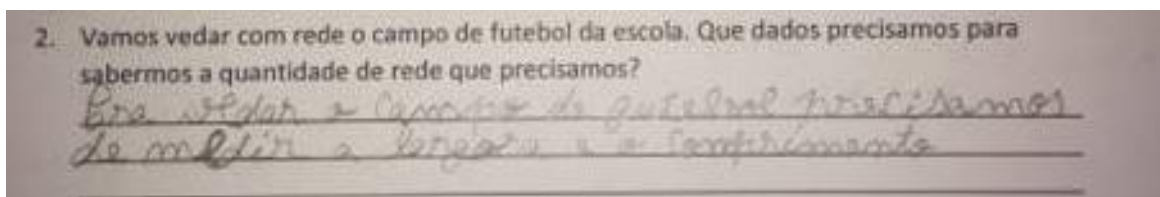 2. Vamos vedar com rede o campo de futebol da escola. Que dados precisamos para
sabermos a quantidade de rede que precisamos?
Pra vedar o campo de futebol precisamos
de medir a largura e o comprimento